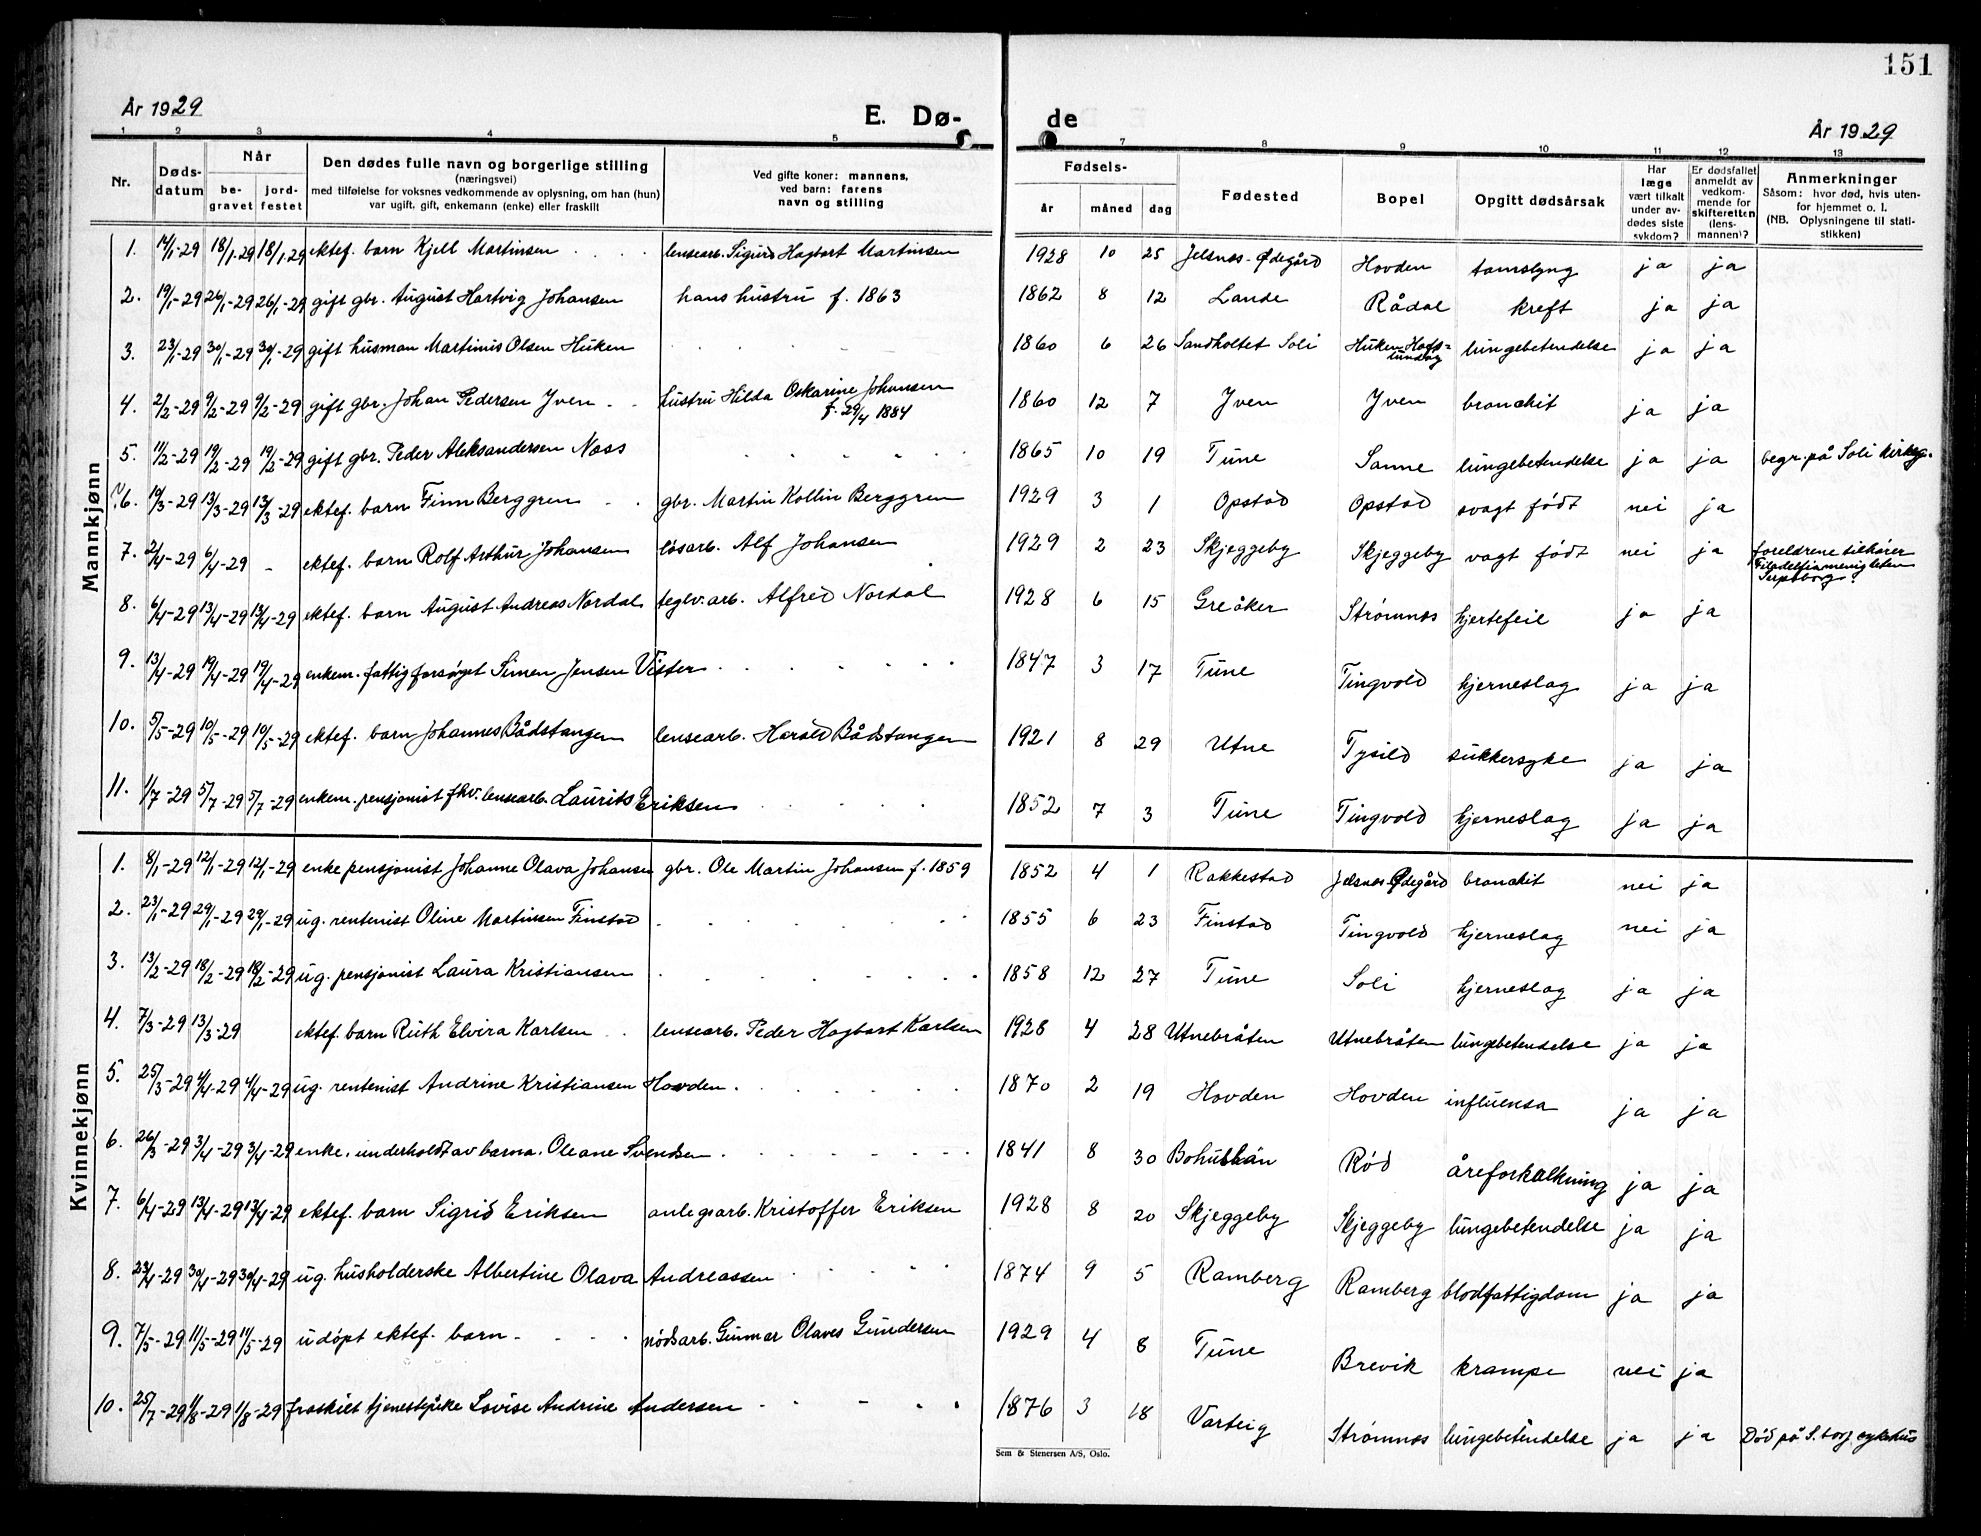 151
År 1929
E. Dø-
de
År 1929
1 2 3 4 5 7 8 9 10 11 12 13
Nr.
Døds-
datum
Når
be-
gravet
jord-
festet
Den dødes fulle navn og borgerlige stilling
(næringsvei)
med tilføielse for voksnes vedkommende av oplysning, om han (hun)
var ugift, gift, enkemann (enke) eller fraskilt
Ved gifte koner: mannens,
ved barn: farens
navn og stilling
Fødsels-
år måned dag
Fødested
Bopel
Opgitt dødsårsak
Har
læge
vært tilkalt
under av-
dødes siste
sykdom?
Er dødsfallet
anmeldt av
vedkom-
mende for
skifteretten
(lens-
mannen)?
Anmerkninger
Såsom: hvor død, hvis uten-
for hjemmet o. l.
(NB. Oplysningene til stati-
stikken)
Mannkjønn
1. 14/1-29 18/1-29 18/1-29 ektef. barn Kjell Martinsen lensearb. Sigurd Hagbart Martinsen 1928 10 25 Jelsnes-Ødegård Hovden ja ja
2. 19/1-29 26/1-29 26/1-29 gift gbr. August Hartvig Johansen hans hustru f. 1863 1862 8 12 Lande Rådal kreft ja ja
3. 23/1-29 30/1-29 30/1-29 gift husman Martinus Olsen Huken 1860 6 26 Sandholtet Soli Huken lungebetendelse ja ja
4. 2/2-29 9/2-29 9/2-29 gift gbr. Johan Pedersen Yven hustru Hilda Oskarine Johansen f. 29/4 1884 1860 12 7 Yven Yven bronckit ja ja
5. 11/2-29 19/2-29 19/2-29 gift gbr. Peder Aleksandersen Næss 1865 10 19 Tune Sanne lungebetendelse ja ja begr. på Soli kirkeg.
6. 10/3-29 13/3-29 13/3-29 ektef. barn Finn Berggren gbr. Martin Kollin Berggren 1929 3 1 Opstad Opstad svagt født nei ja
7. 2/4-29 6/4-29 - ektef. barn Rolf Arthur Johansen løsarb. Alf Johansen 1929 2 23 Skjeggeby Skjeggeby vagt født nei ja foreldrene tilhører
Filadelfiamenigheten
Sarpsborg.
8. 6/4-29 13/4-29 13/4-29 ektef. barn August Andreas Nordal teglv.arb. Alfred Nordal 1928 6 15 Greåker Strømnes hjertefeil ja ja
9. 13/4-29 19/4-29 19/4-29 enkem. fattigforsørget Simen Jensen Vister 1847 3 17 Tune Tingvold hjerneslag ja ja
10. 5/5-29 10/5-29 10/5-29 ektef. barn Johannes Bådstangen lensearb. Harald Bådstangen 1921 8 29 Utne Tysild sukkersyke ja ja
11. 1/7-29 5/7-29 5/7-29 enkem. pensjonist fhv. lensearb. Laurits Eriksen 1852 7 3 Tune Tingvold hjerneslag ja ja
Kvinnekjønn
1. 8/1-29 12/1-29 12/1-29 enke pensjonist Johanne Olava Johansen gbr. Ole Martin Johansen f. 1859 1852 4 1 Rakkestad Jelsnes Ødegård bronckit nei ja
2. 23/1-29 29/1-29 29/1-29 ug. rentenist Oline Martinsen Finstad 1855 6 23 Finstad Tingvold hjerneslag nei ja
3. 13/2-29 18/2-29 18/2-29 ug. pensjonist Laura Kristiansen 1858 12 27 Tune Soli hjerneslag ja ja
4. 7/3-29 13/3-29 ektef. barn Ruth Elvira Karlsen lensearb. Peder Hagbart Karlsen 1928 4 28 Utnebråten Utnebråten lungebetendelse ja ja
5. 25/3-29 4/4-29 4/4-29 ug. rentenist Andrine Kristiansen Hovden 1870 2 19 Hovden Hovden influensa ja ja
6. 26/3-29 3/4-29 3/4-29 enke. underholdt av barna. Oleane Svendsen 1841 8 30 Bohuslän Rød åreforkalkning ja ja
7. 6/4-29 13/4-29 13/4-29 ektef. barn Sigrid Eriksen anlegsarb. Kristoffer Eriksen 1928 8 20 Skjeggeby Skjeggeby lungebetendelse ja ja
8. 23/4-29 30/4-29 30/4-29 ug. husholderske Albertine Olava Andreassen 1874 9 5 Ramberg Ramberg blodfattigdom ja ja
9. 7/5-29 11/5-29 11/5-29 udøpt ektef. barn nødsarb. Gunnar Olaves Gundersen 1929 4 8 Tune Brevik krampe nei ja
10. 25/7-29 1/8-29 1/8-29 fraskilt tjenestepike Lovise Andrine Andersen 1876 3 18 Varteig Strømnes lungebetendelse ja ja Død på S.borg sykehus
Sem & Stenersen A/S, Oslo.